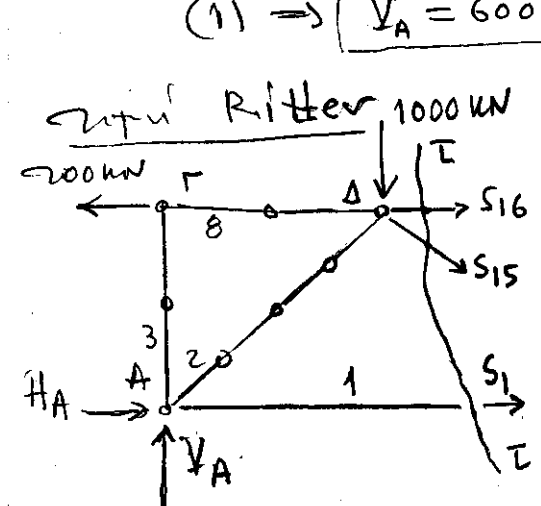 (1) → V_A = 600
τομή Ritter 1000 kN
200 kN Γ I
8 Δ S₁₆
S₁₅
3 2
A 1 S₁
H_A
V_A I